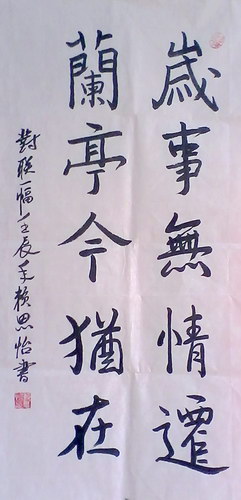 歲事無情遷
蘭亭今猶在
對联一幅壬辰年賴思怡書